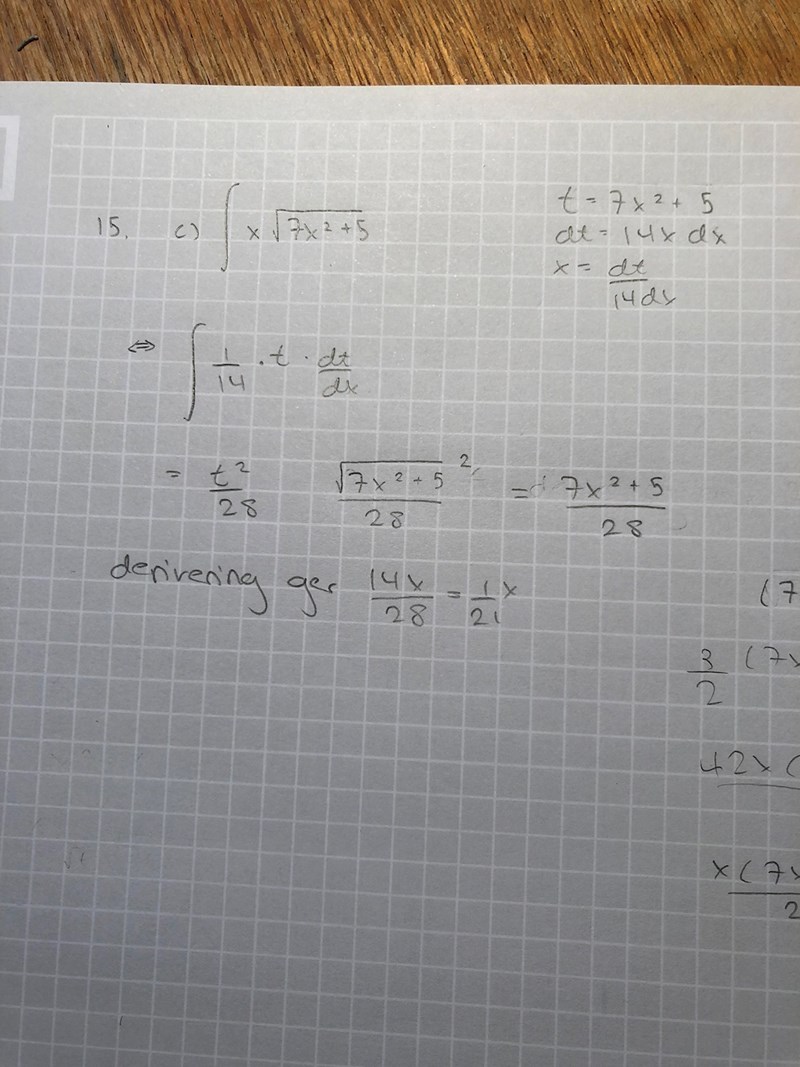 15. c) ∫ x √(7x² + 5)
t = 7x² + 5
dt = 14x dx
x = dt/(14dx)
⇔ ∫ 1/14 · t · dt/dx
= t²/28 √(7x² + 5)²/28 = (7x² + 5)/28
derivering ger 14x/28 = 1/21 x
(7
3/2 (7x
42x (
x(7x
2